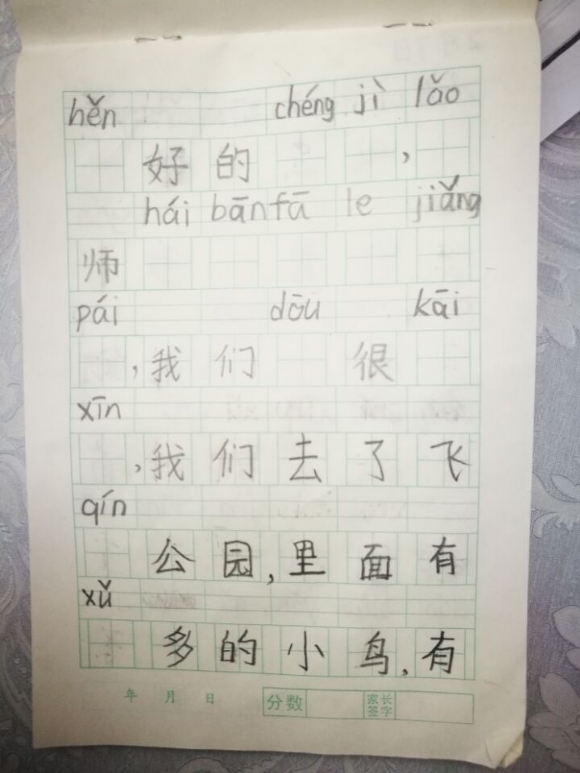 hěn chéng jì lǎo
好的,
hái bān fā le jiǎng
师
pái dōu kāi
,我们 很
xīn
,我们去了飞
qín
公园,里面有
xǔ
多的小鸟,有
年 月 日 分数 家长签字